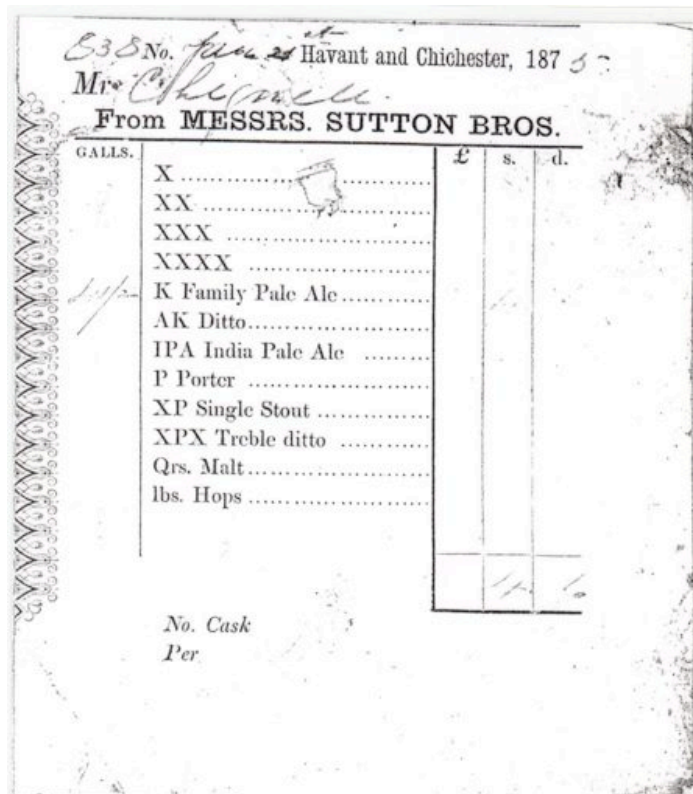 838 No. Havant and Chichester, 1875
Mr
From MESSRS. SUTTON BROS.
GALLS. £ s. d.
X ..............................
XX ..............................
XXX ..............................
XXXX ..............................
K Family Pale Ale............
AK Ditto..........................
IPA India Pale Ale .......
P Porter ..........................
XP Single Stout ................
XPX Treble ditto ............
Qrs. Malt..........................
lbs. Hops ..........................
No. Cask
Per